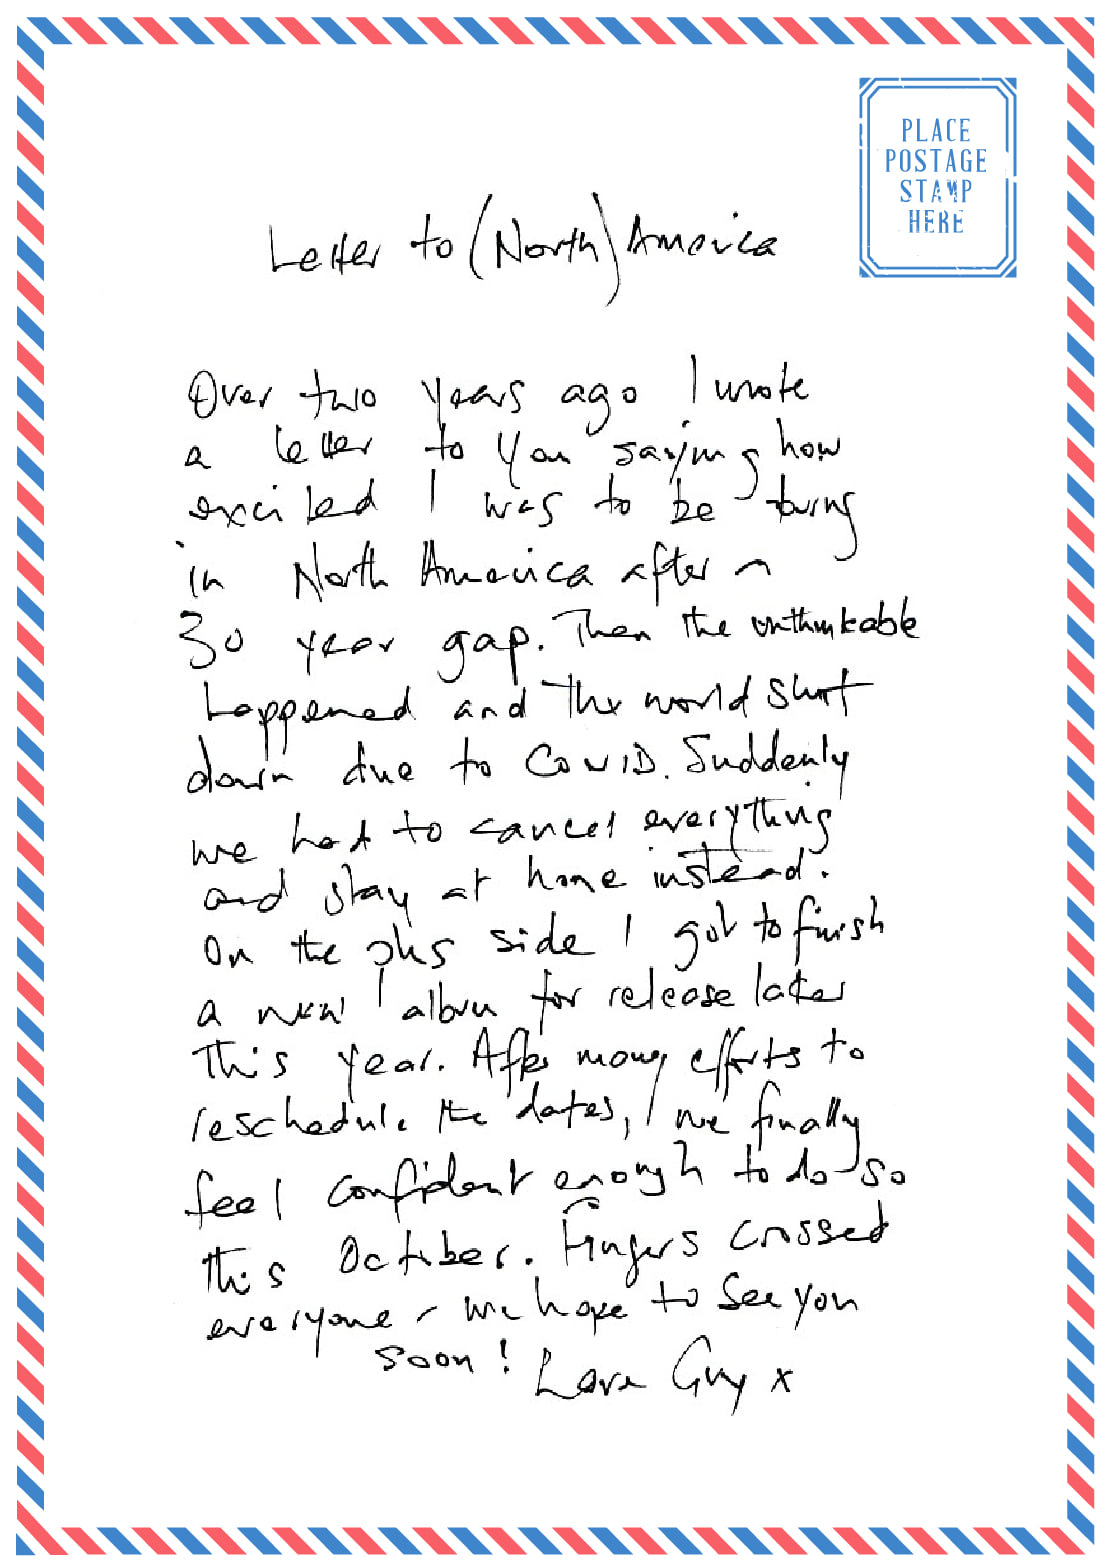 PLACE
POSTAGE
STAMP
HERE
Letter to (North) America
Over two years ago I wrote
a letter to you saying how
excited I was to be touring
in North America after a
30 year gap. Then the unthinkable
happened and the world shut
down due to COVID. Suddenly
we had to cancel everything
and stay at home instead.
On the plus side I got to finish
a new album for release later
this year. After many efforts to
reschedule the dates, we finally
feel confident enough to do so
this October. Fingers crossed
everyone - we hope to see you
soon! Love Guy x